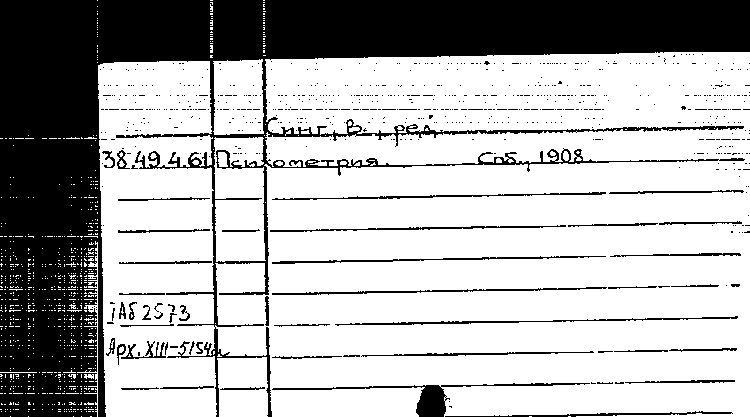 Синг, В., ред.
38.49.4.61 Психометрия. Спб., 1908.
IАб 2573
Арх. XIII-5154а